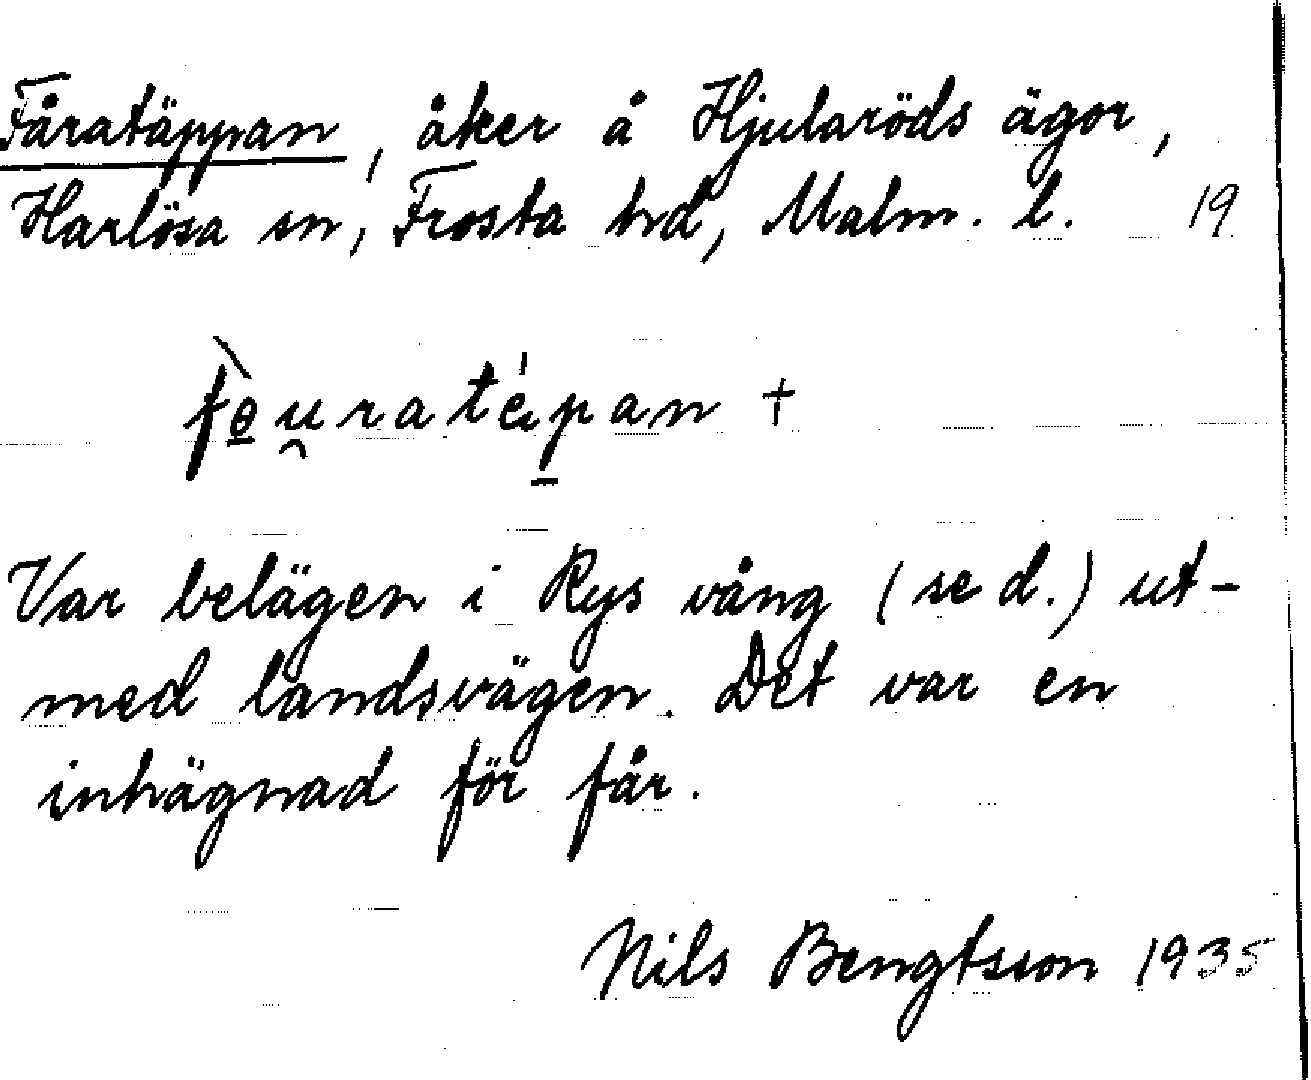 Fåratäppan, åker å Hjularöds ägor,
Harlösa sn, Frosta hd, Malm. l. 19
fə̱̀u̯ratép̱an +
Var belägen i Rys vång (se d.) ut-
med landsvägen. Det var en
inhägnad för får.
Nils Bengtsson 1935